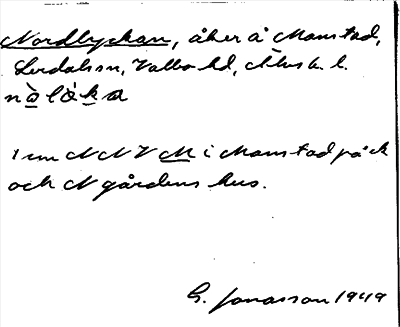 Nordlyckan, åker å Monstad,
Lerdals sn, Valbo hd, Älvsb. l.
nòlǿka
1 cm N N V M i Monstad på ek
och N gårdens hus.
G. Jonasson 1949